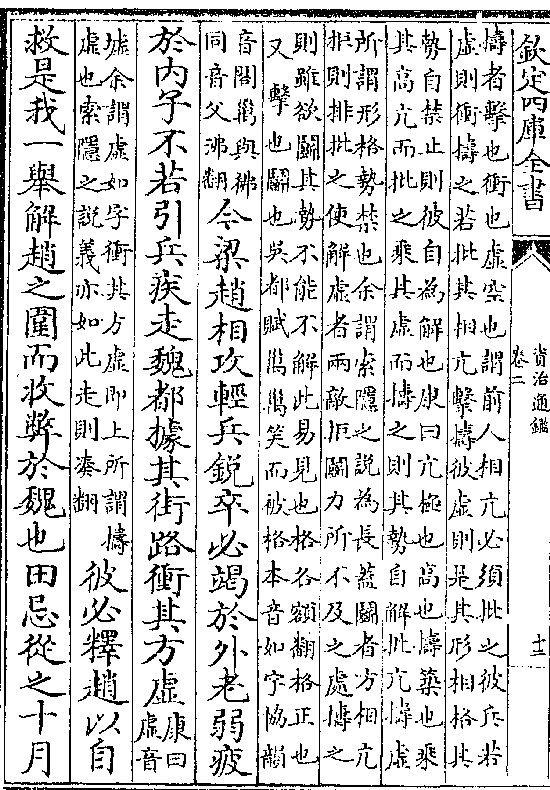 欽定四庫全書
資治通鑑
卷二
十三
擣者擊也衝也虛空也謂前人相亢必須批之彼兵若
虛則衝擣之若批其相亢擊擣彼虛則是其形相格其
勢自禁止則彼自為解也康曰亢極也高也擣築也乘
其高亢而批之乘其虛而擣之則其勢自解批亢擣虛
所謂形格勢禁也余謂索隱之說為長蓋鬭者方相亢
拒則排批之使解虛者兩敵拒鬭力所不及之處擣之
則雖欲鬭其勢不能不解此易見也格各額翻格正也
又擊也鬭也吳都賦笑而被格本音如字協韻
音閣與狒
同音父沸翻
今梁趙相攻輕兵銳卒必竭於外老弱疲
於内子不若引兵疾走魏都據其街路衝其方虛
康曰
虛音
墟余謂虛如字衝其方虛即上所謂擣
虛也索隱之說義亦如此走則湊翻
彼必釋趙以自
救是我一舉解趙之圍而收弊於魏也田忌從之十月